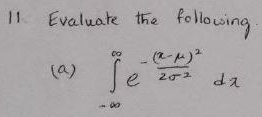 11 Evaluate the following.
(a) ∫_{-∞}^{∞} e^{-\frac{(x-μ)²}{2σ²}} dx